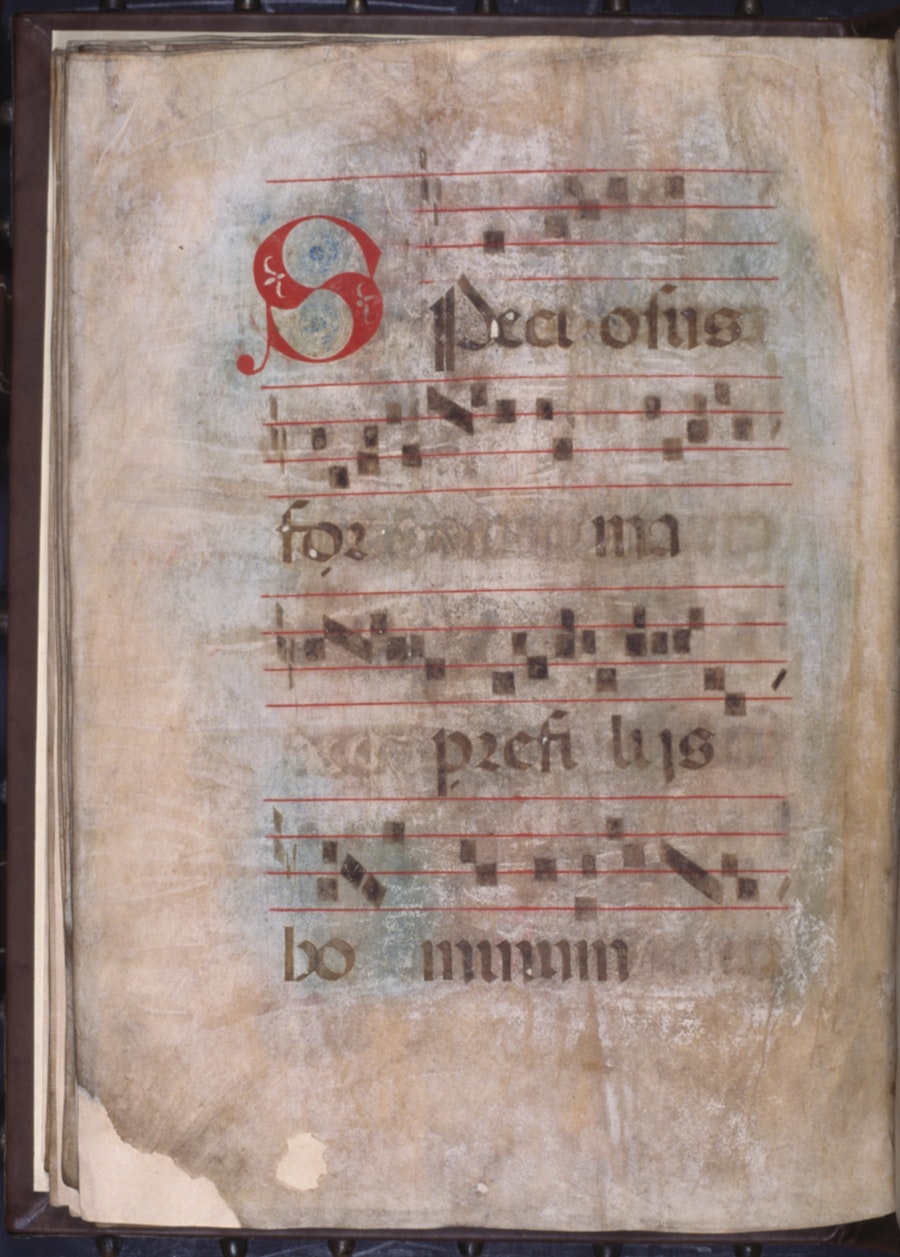 SPeci oſus
for ma
prefi lijs
ho minum